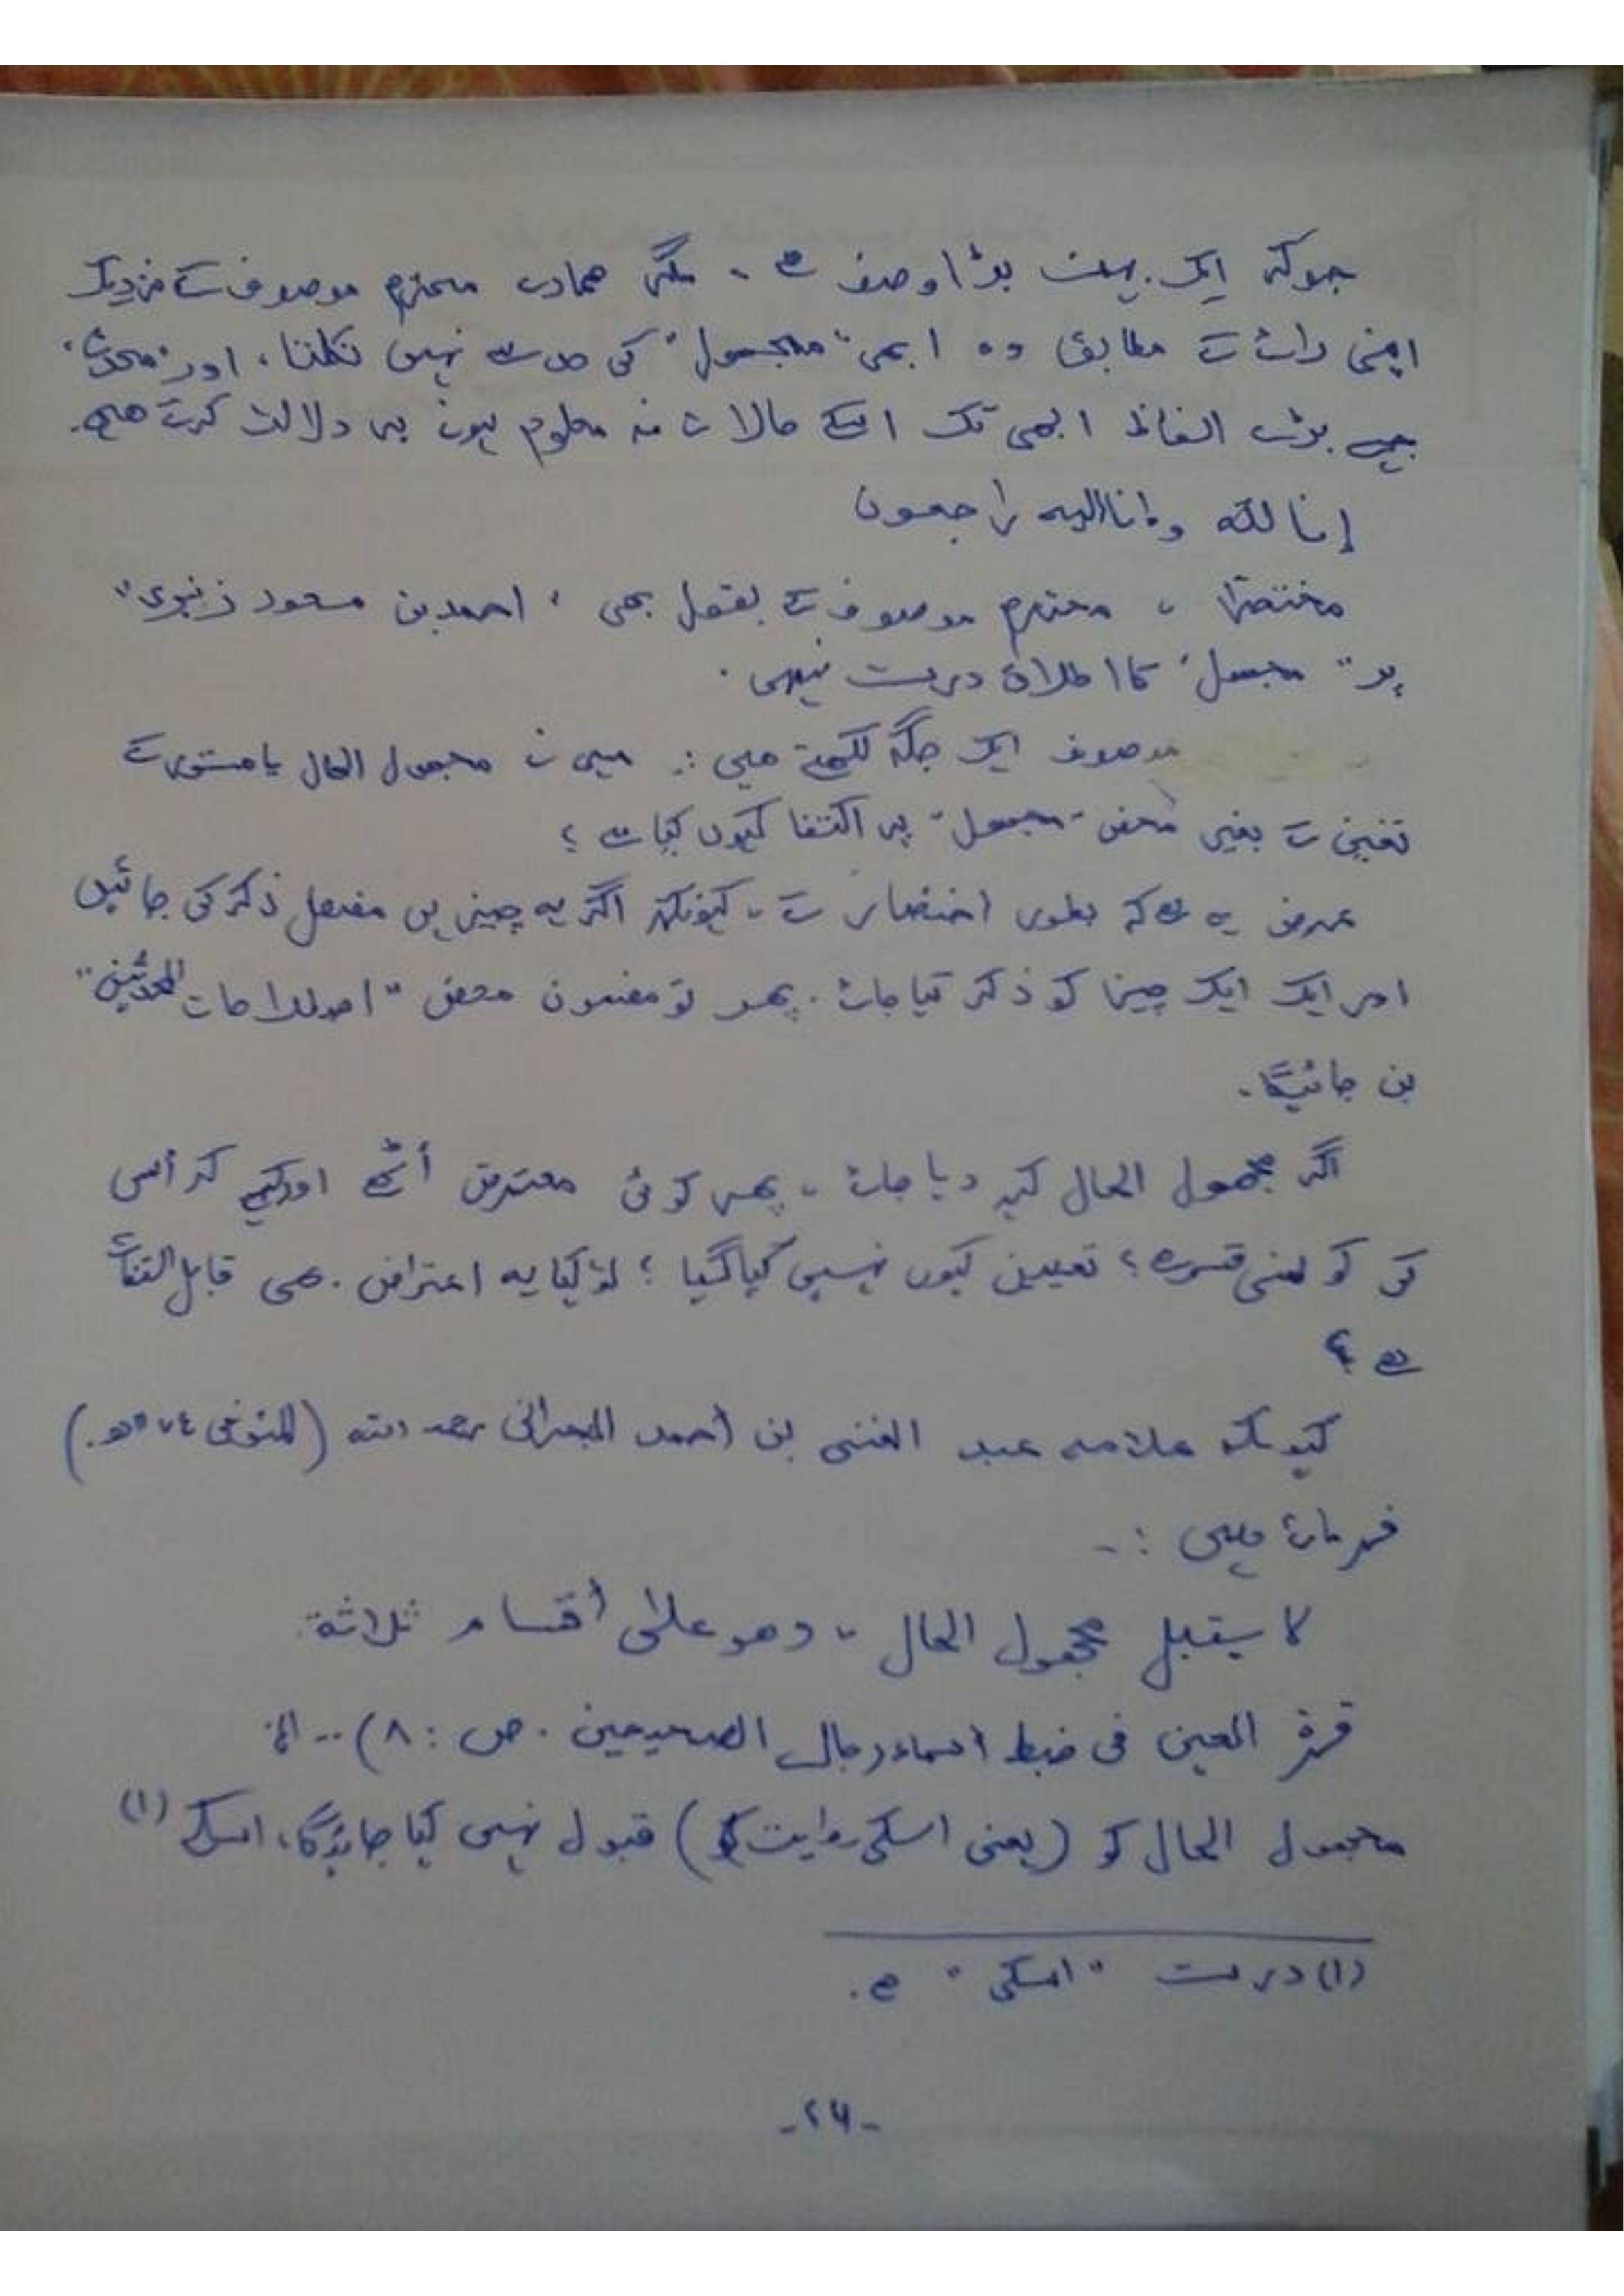 جوکہ ایک بہت بڑا وصف ہے ۔ مگر ہمارے محترم موصوف کے نزدیک
اپنی رائے کے مطابق وہ ابھی "مجہول" کی حد سے نہیں نکلتا، اور "محدث"
جیسے بڑے الفاظ ابھی تک اسکے حالات نہ معلوم ہونے پر دلالت کرتے ہیں۔
إنا لله وإنا إليه راجعون
مختصراً ، محترم موصوف کے بقول بھی ، احمد بن مسعود زنبری"
پر "مجہول" کا اطلاق درست نہیں ۔
موصوف ایک جگہ لکھتے ہیں :۔ میں نے مجہول الحال یا مستور کے
تعین کے بغیر محض "مجہول" پر اکتفا کیوں کیا ہے ؟
عرض یہ ہے کہ بطور اختصار کے ، کیونکہ اگر یہ چیزیں مفصل ذکر کی جائیں
اور ایک ایک چیز کو ذکر کیا جائے ۔ پھر تو مضمون محض "اصطلاحات المحدثین"
بن جائیگا۔
اگر مجہول الحال کہہ دیا جائے ، پھر کوئی معترض اُٹھے اور کہے کہ اُس
کی کونسی قسم ہے ؟ تعیین کیوں نہیں کیا گیا ؟ تو کیا یہ اعتراض بھی قابل التفات
ہے ؟
کیونکہ علامہ عبد الغنی بن احمد البحرانی رحمہ اللہ (المتوفی
فرماتے ہیں :۔
لا يقبل مجهول الحال ، وهو على أقسام ثلاثة
قرۃ العين فی ضبط أسماء رجال الصحيحين . ص : ۸) .. الخ
مجہول الحال کو (یعنی اسکی روایت کو) قبول نہیں کیا جائیگا، اسکے (۱)
(۱) درست "اسکی" ہے ۔
-۲۶-